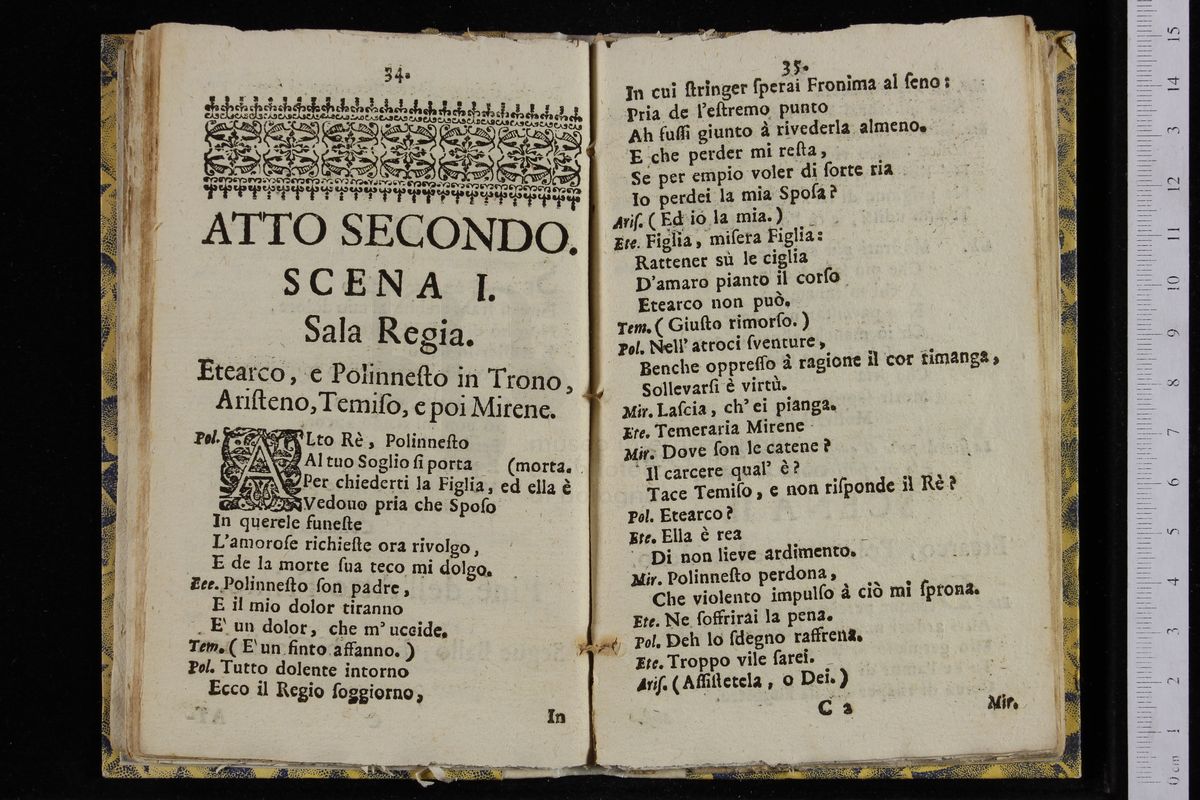 34.
ATTO SECONDO.
SCENA I.
Sala Regia.
Etearco, e Polinneſto in Trono,
Ariſteno, Temiſo, e poi Mirene.
Pol. ALto Rè, Polinneſto
Al tuo Soglio ſi porta (morta.
Per chiederti la Figlia, ed ella è
Vedovo pria che Spoſo
In querele funeſte
L'amoroſe richieſte ora rivolgo,
E de la morte ſua teco mi dolgo.
Ete. Polinneſto ſon padre,
E il mio dolor tiranno
E' un dolor, che m'uccide.
Tem. ( E' un finto affanno. )
Pol. Tutto dolente intorno
Ecco il Regio ſoggiorno,
In
35.
In cui ſtringer ſperai Fronima al ſeno:
Pria de l'eſtremo punto
Ah fuſſi giunto à rivederla almeno.
E che perder mi reſta,
Se per empio voler di ſorte ria
Io perdei la mia Spoſa?
Ariſ. ( Ed io la mia. )
Ete. Figlia, miſera Figlia:
Rattener sù le ciglia
D'amaro pianto il corſo
Etearco non può.
Tem. ( Giuſto rimorſo. )
Pol. Nell' atroci ſventure,
Benche oppreſſo à ragione il cor rimanga,
Sollevarſi è virtù.
Mir. Laſcia, ch' ei pianga.
Ete. Temeraria Mirene
Mir. Dove ſon le catene?
Il carcere qual' è?
Tace Temiſo, e non riſponde il Rè?
Pol. Etearco?
Ete. Ella è rea
Di non lieve ardimento.
Mir. Polinneſto perdona,
Che violento impulſo à ciò mi ſprona.
Ete. Ne ſoffrirai la pena.
Pol. Deh lo ſdegno raffrena.
Ete. Troppo vile ſarei.
Ariſ. (Aſſiſtetela, o Dei.)
C 2
Mir.
15
14
13
12
11
10
9
8
7
6
5
4
3
2
1
0 cm